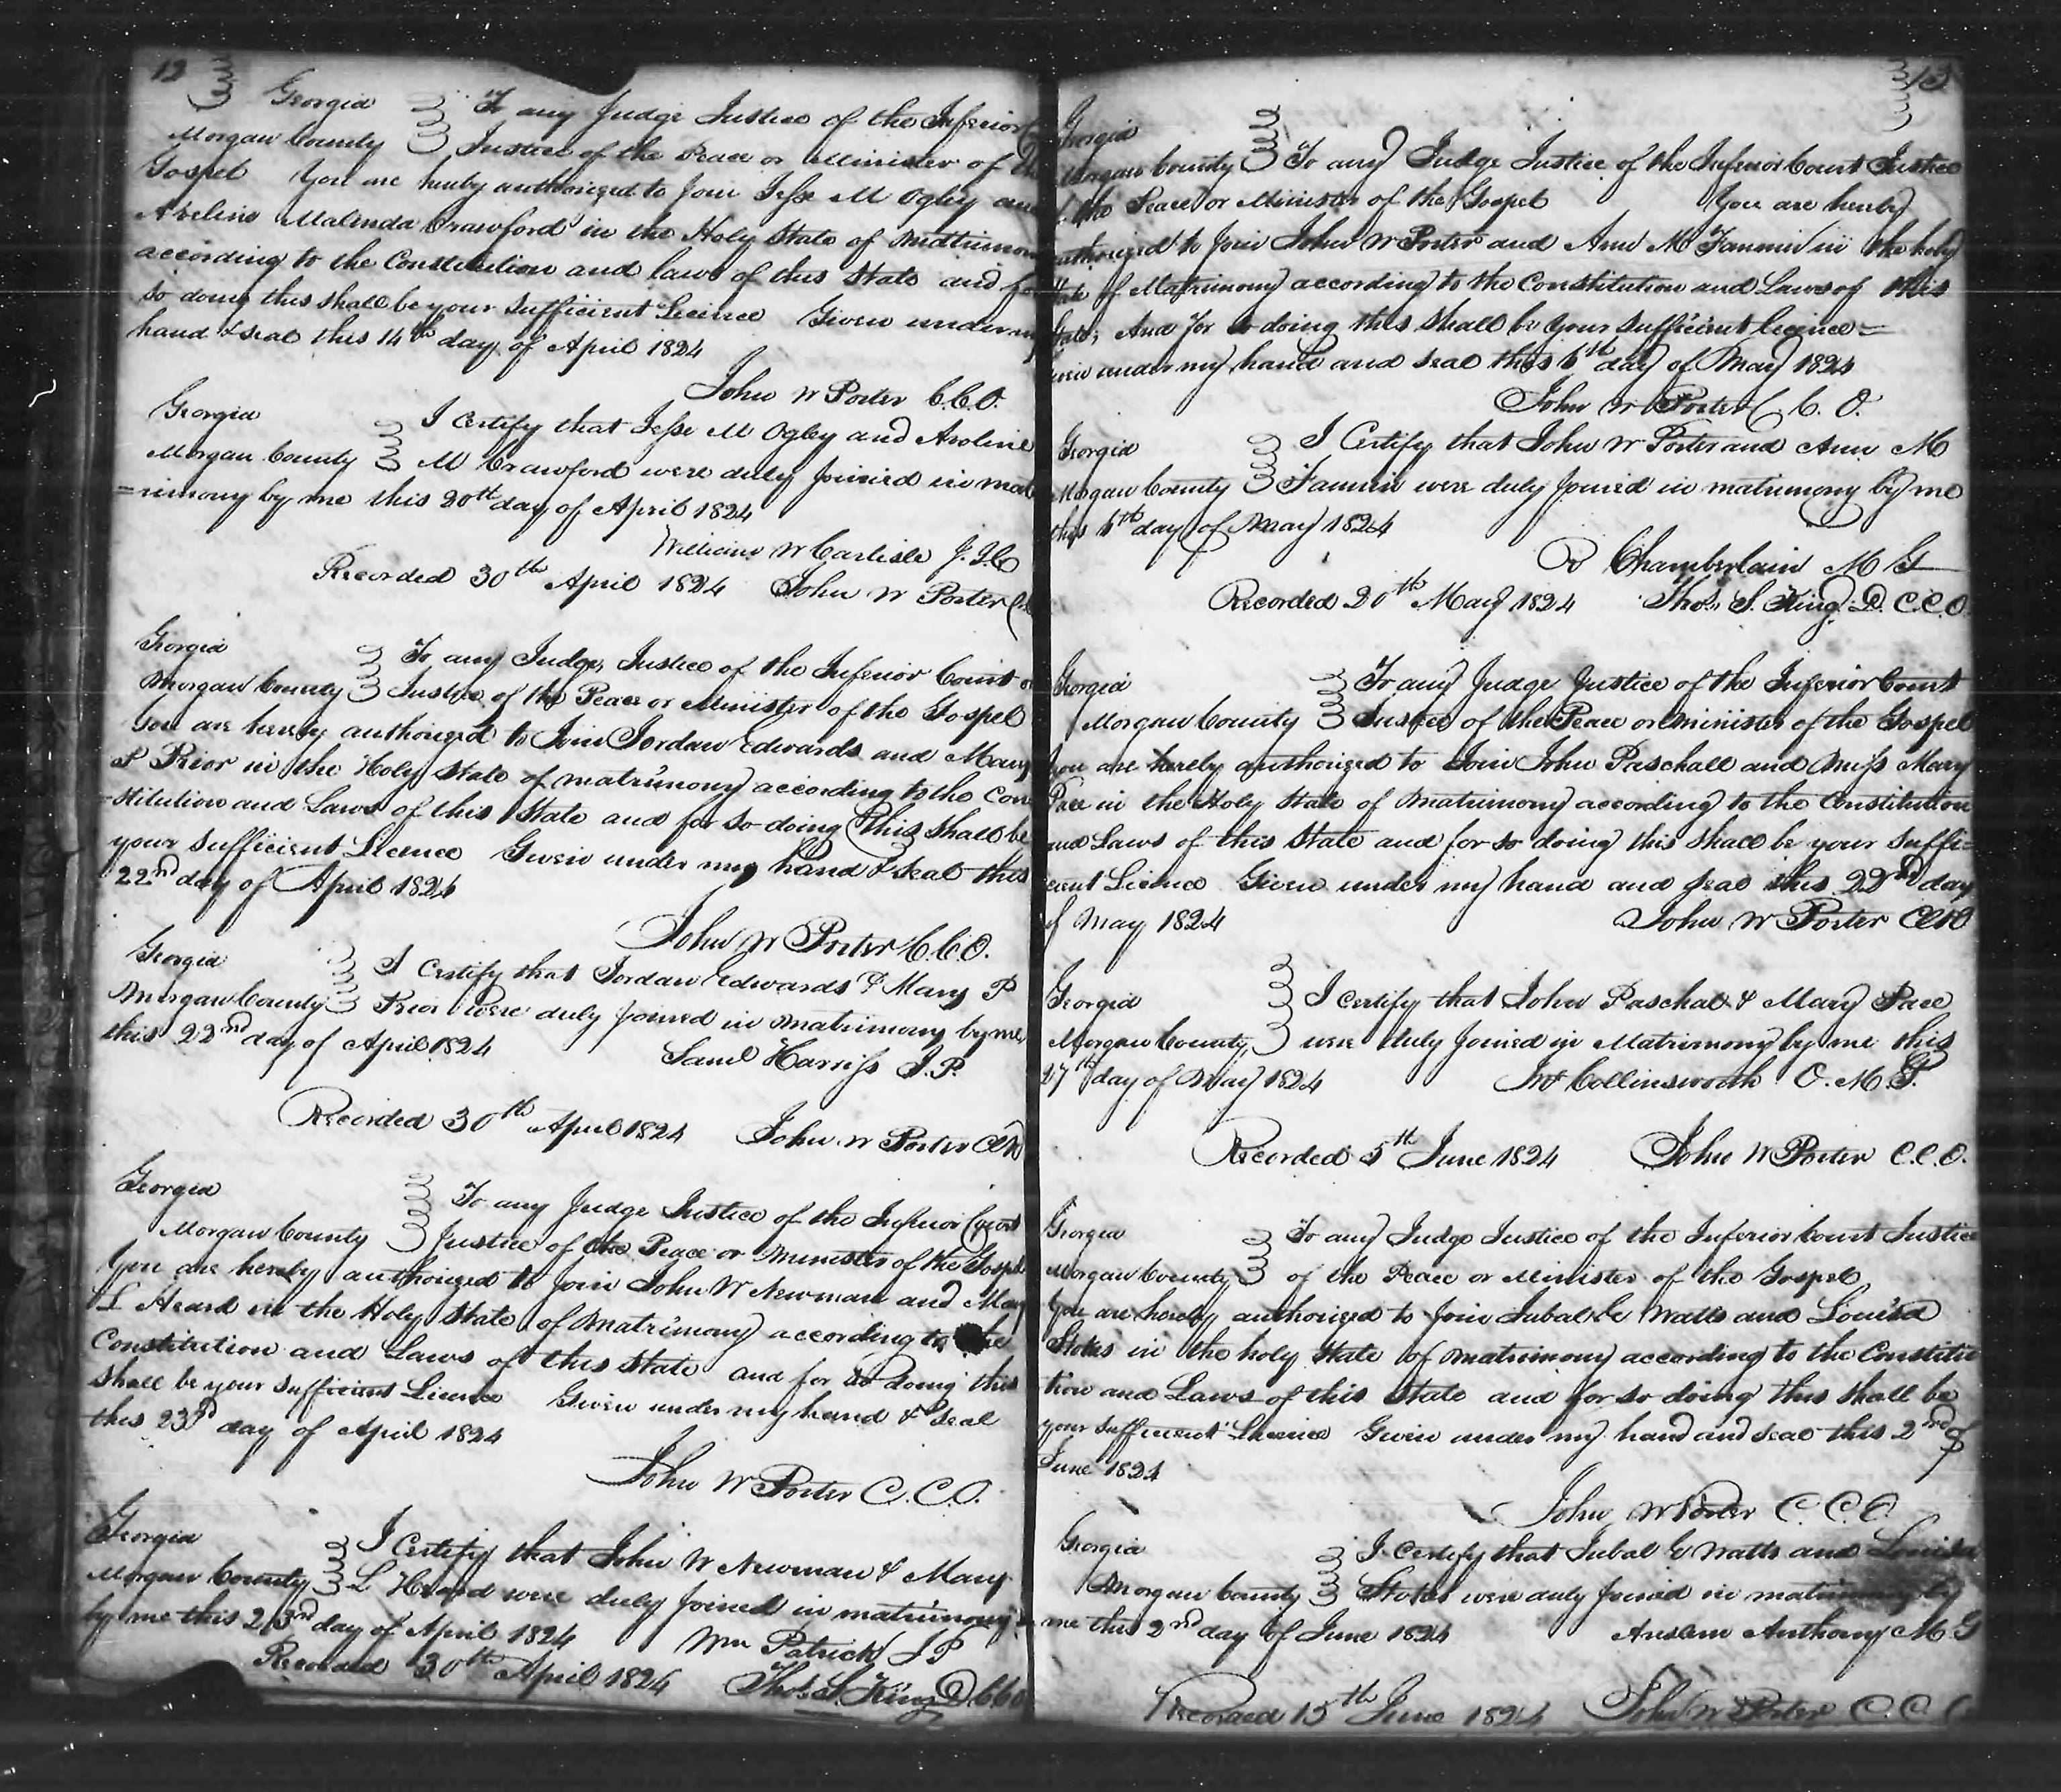 12
Georgia To any Judge Justice of the Inferior
Morgan County Justice of the Peace or Minister of the
Gospel You are hereby authorized to Join Jesse M Ogby and
Malinda Crawford in the Holy State of Matrimony
according to the Constitution and laws of this State and for
so doing this shall be your sufficient Licence Given under my
hand & seal this 14th day of April 1824
John W Porter C.C.O.
Georgia I Certify that Jesse M Ogby and Aveline
Morgan County M Crawford were duly Joined in mat
=rimony by me this 20th day of April 1824
William W Carlisle J.I.C
Recorded 30th April 1824 John W Porter
Georgia To any Judge, Justice of the Inferior Court or
Morgan County Justice of the Peace or Minister of the Gospel
You are hereby authorized to Join Jordan Edwards and Mary
P Prior in the Holy State of matrimony according to the Con
=stitution and Laws of this State and for so doing this shall be
your sufficient Licence Given under my hand & seal this
22nd day of April 1824
John W Porter C.C.O.
Georgia I Certify that Jordan Edwards & Mary P
Morgan County Prior were duly joined in matrimony by me
this 22nd day of April 1824 Saml Harriss J.P.
Recorded 30th April 1824 John W Porter Clk
Georgia To any Judge Justice of the Inferior Court
Morgan County Justice of the Peace or Minister of the Gospel
You are hereby authorized to Join John W Newman and Mary
L Heard in the Holy State of Matrimony according to the
Constitution and Laws of this State and for so doing this
shall be your sufficient Licence Given under my hand & Seal
this 23d day of April 1824
John W Porter C.C.O.
Georgia I Certify that John W Newman & Mary
Morgan County L Heard were duly Joined in matrimony
by me this 23rd day of April 1824 Wm Patrick J P
Recorded 30th April 1824 Thos. S. King D CCO
13
Georgia
Morgan County To any Judge Justice of the Inferior Court Justice
of the Peace or Minister of the Gospel You are hereby
authorized to Join John W Porter and Ann M Fannin in the holy
State of Matrimony according to the Constitution and Laws of this
State, And for so doing this shall be your sufficient licence =
Given under my hand and seal this 6th day of May 1824
John W Porter C. C. O.
Georgia I Certify that John W Porter and Ann M
Morgan County Fannin were duly Joined in matrimony by me
this 6th day of May 1824
R Chamberlain M G
Recorded 20th May 1824 Thos. S. King, D. C.C.O
Georgia To any Judge Justice of the Inferior Court
Morgan County Justice of the Peace or minister of the Gospel
You are hereby authorized to Join John Paschall and Miss Mary
Pace in the Holy State of Matrimony according to the Constitution
and Laws of this State and for so doing this shall be your suffi=
cient Licence Given under my hand and seal this 22nd day
of May 1824 John W Porter CCO
Georgia I certify that John Paschal & Mary Pace
Morgan County were duly Joined in Matrimony by me this
27th day of May 1824 Jno Collinsworth O.M.G.
Recorded 5th June 1824 John W Porter C.C.O.
Georgia To any Judge Justice of the Inferior Court Justice
Morgan County of the Peace or Minister of the Gospel
You are hereby authorized to Join Jubal E Watts and Louisa
Stokes in the holy State of matrimony according to the Constitu
tion and Laws of this State and for so doing this shall be
your sufficient Licence Given under my hand and seal this 2nd of
June 1824
John W Porter C.C.O
Georgia I Certify that Jubal E Watts and Louisa
Morgan County Stokes were duly Joined in matrimony by
me this 2nd day of June 1824 Anslem Anthony M G
Recorded 15th June 1824 John W Porter C.C.